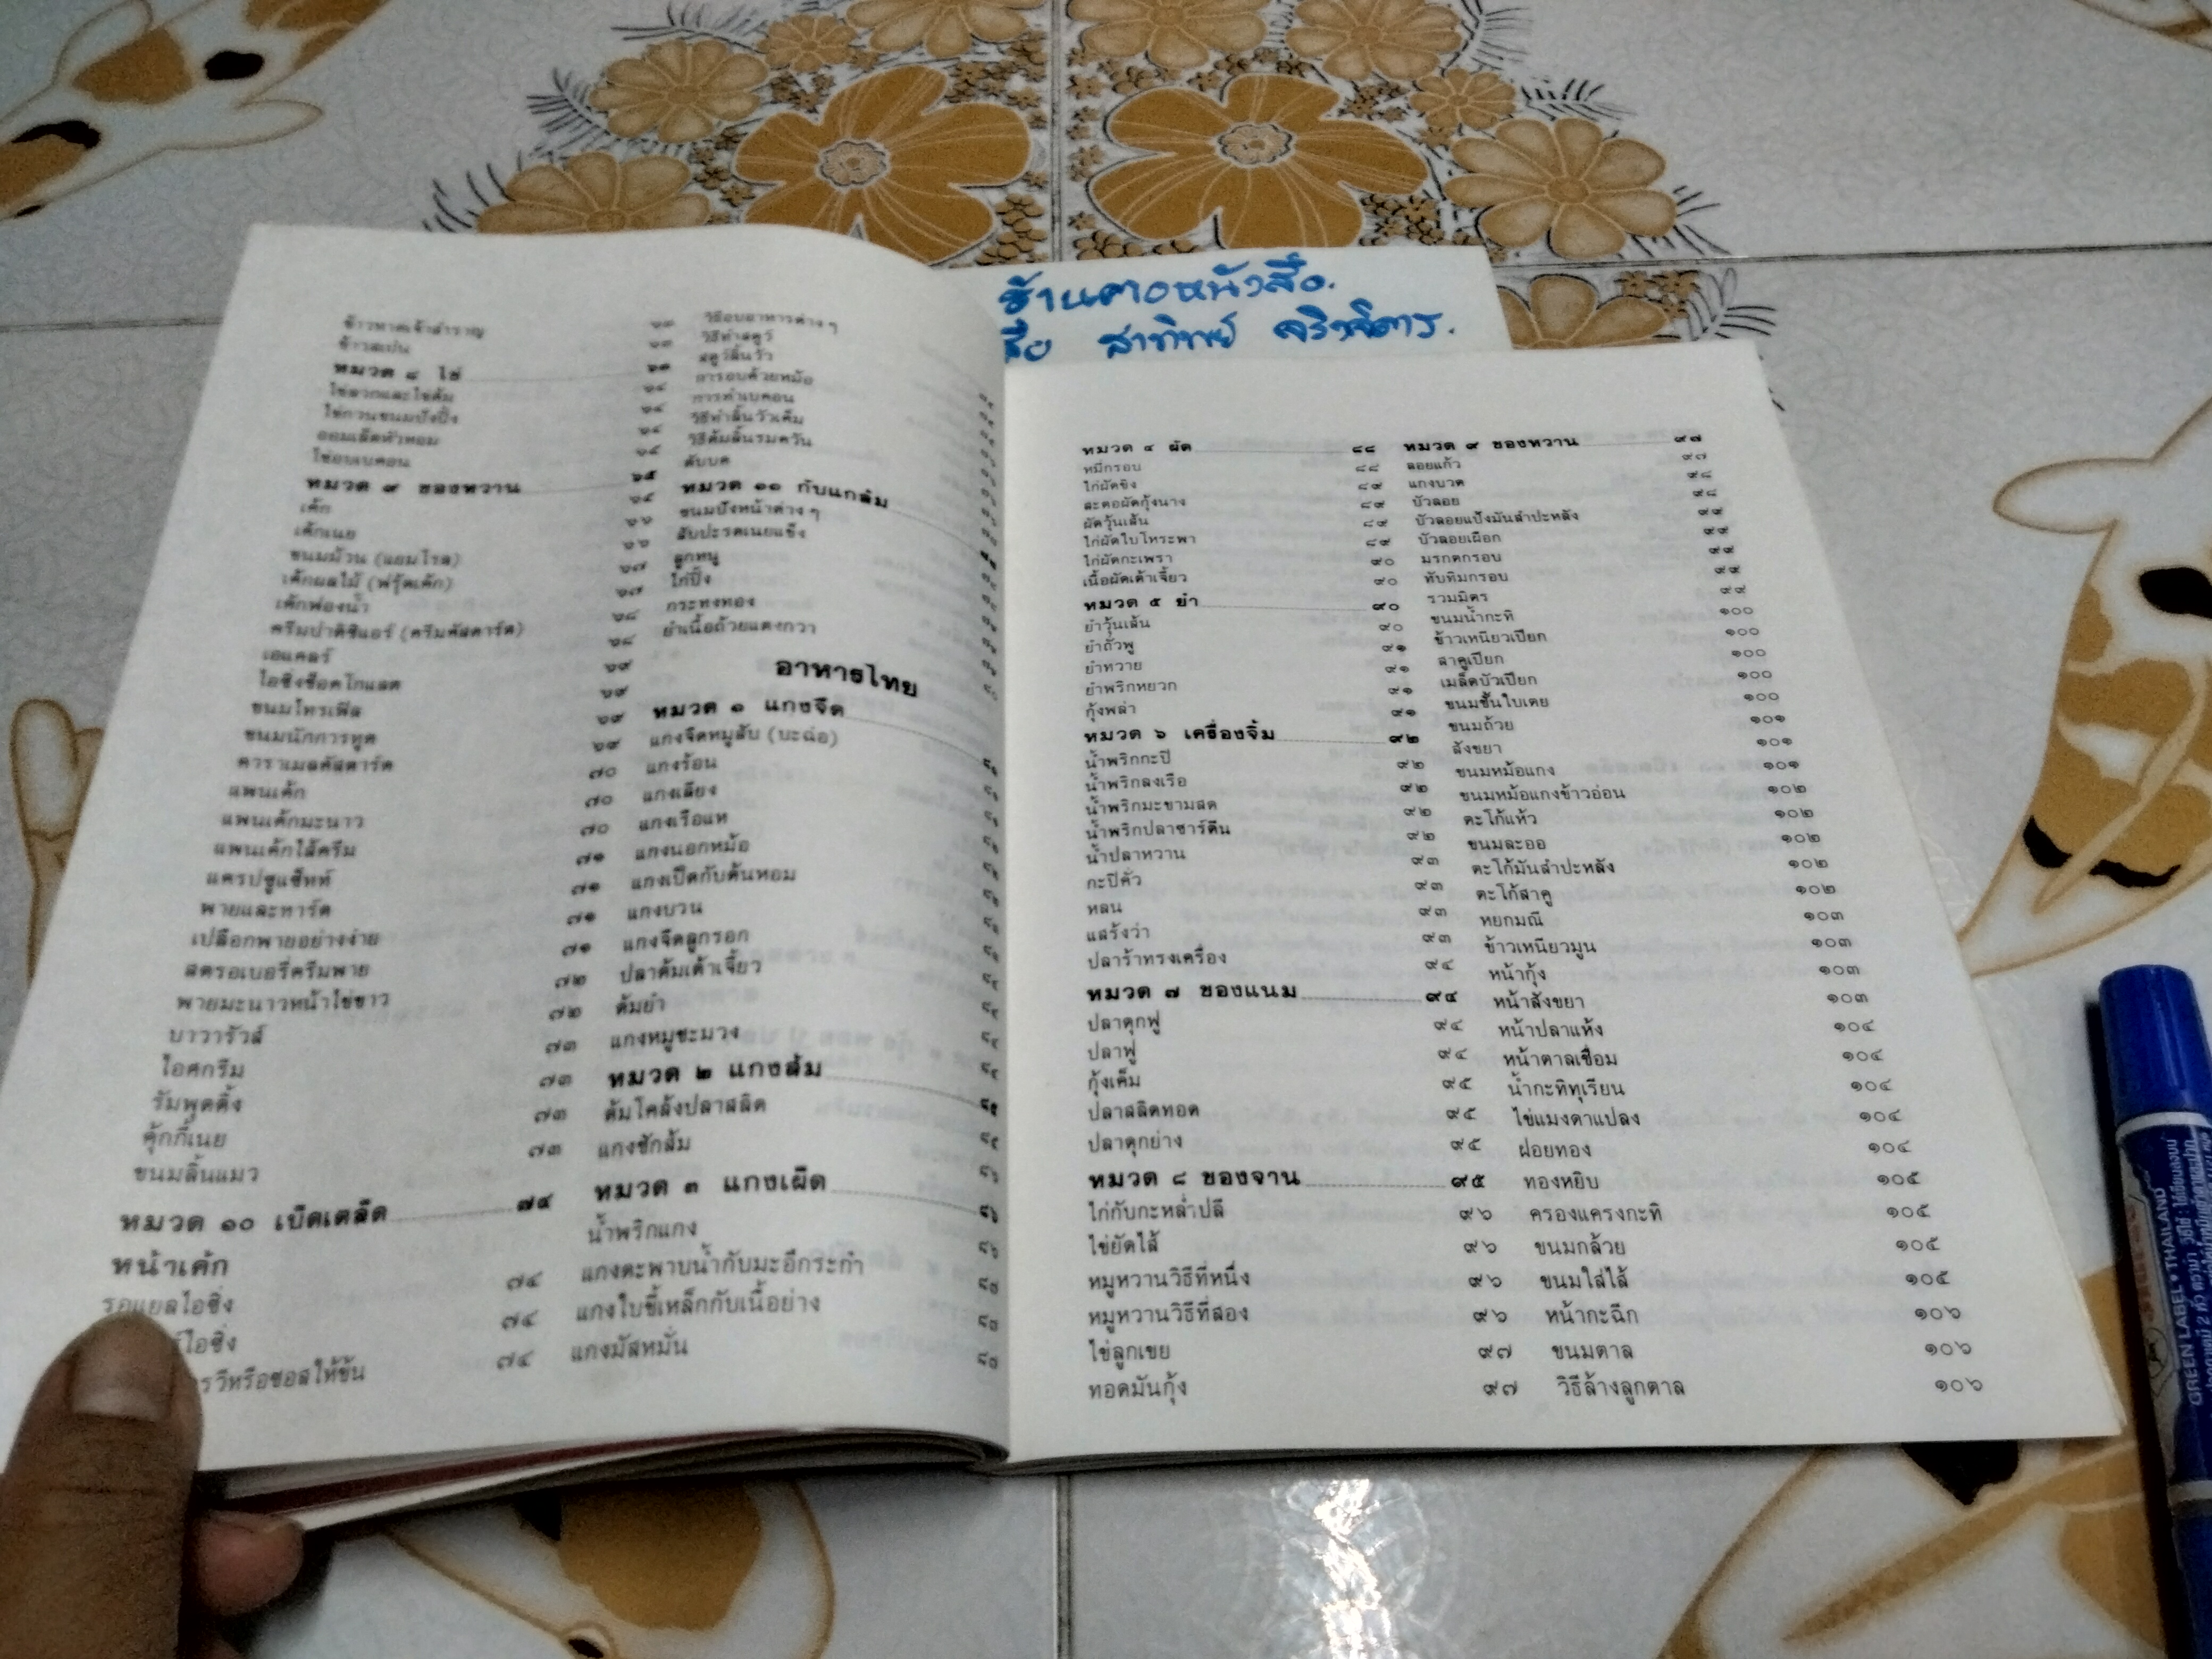 ร้านคาวหนังสือ.
ชื่อ สาทิพย์ จริงจิตร.
ข้าวหาดเจ้าสำราญ ๖๓
ข้าวสเปน ๖๓
หมวด ๘ ไข่ ๖๓
ไข่ลวกและไข่ต้ม ๖๔
ไข่กวนขนมปังปิ้ง ๖๔
ออมเล็ตหัวหอม ๖๔
ไข่อบเบคอน ๖๔
หมวด ๙ ของหวาน ๖๕
เค้ก ๖๕
เค้กเนย ๖๖
ขนมม้วน (แยมโรล) ๖๖
เค้กผลไม้ (ฟรุ้ตเค้ก) ๖๗
เค้กฟองน้ำ ๖๗
ครีมปาติซิแอร์ (ครีมคัสตาร์ด) ๖๘
เอแคลร์ ๖๘
ไอซิ่งช็อคโกแลต ๖๙
ขนมไทรเฟิล ๖๙
ขนมนักการทูต ๖๙
คาราเมลคัสตาร์ด ๖๙
แพนเค้ก ๗๐
แพนเค้กมะนาว ๗๐
แพนเค้กไส้ครีม ๗๐
แครปซูแซ็ทท์ ๗๑
พายและทาร์ต ๗๑
เปลือกพายอย่างง่าย ๗๑
สตรอเบอรี่ครีมพาย ๗๑
พายมะนาวหน้าไข่ขาว ๗๒
บาวารัวส์ ๗๒
ไอศกรีม ๗๓
รัมพุดดิ้ง ๗๓
คุ้กกี้เนย ๗๓
ขนมลิ้นแมว ๗๓
หมวด ๑๐ เบ็ดเตล็ด ๗๔
หน้าเค้ก
รอแยลไอซิ่ง ๗๔
ไอซิ่ง ๗๔
รวีหรือซอสให้ข้น ๗๔
วิธีอบอาหารต่าง ๆ
วิธีทำสตูว์
สตูว์ลิ้นวัว
การอบด้วยหม้อ
การทำเบคอน
วิธีทำลิ้นวัวเค็ม
วิธีต้มลิ้นรมควัน
ตับบด
หมวด ๑๑ กับแกล้ม
ขนมปังหน้าต่าง ๆ
สับปะรดเนยแข็ง
ลูกหนู
ไก่ปิ้ง
กระทงทอง
ยำเนื้อถ้วยแตงกวา
อาหารไทย
หมวด ๑ แกงจืด
แกงจืดหมูสับ (บะฉ่อ)
แกงร้อน
แกงเลียง
แกงเรือแห
แกงนอกหม้อ
แกงเป็ดกับต้นหอม
แกงบวน
แกงจืดลูกรอก
ปลาต้มเต้าเจี้ยว
ต้มยำ
แกงหมูชะมวง
หมวด ๒ แกงส้ม
ต้มโคล้งปลาสลิด
แกงชักส้ม
หมวด ๓ แกงเผ็ด
น้ำพริกแกง
แกงตะพาบน้ำกับมะอึกระกำ
แกงใบขี้เหล็กกับเนื้อย่าง
แกงมัสหมั่น
หมวด ๔ ผัด ๘๘
หมี่กรอบ ๘๘
ไก่ผัดขิง ๘๙
สะตอผัดกุ้งนาง ๘๙
ผัดวุ้นเส้น ๘๙
ไก่ผัดใบโหระพา ๘๙
ไก่ผัดกะเพรา ๙๐
เนื้อผัดเต้าเจี้ยว ๙๐
หมวด ๕ ยำ ๙๐
ยำวุ้นเส้น ๙๐
ยำถั่วพู ๙๑
ยำทวาย ๙๑
ยำพริกหยวก ๙๑
กุ้งพล่า ๙๑
หมวด ๖ เครื่องจิ้ม ๙๒
น้ำพริกกะปิ ๙๒
น้ำพริกลงเรือ ๙๒
น้ำพริกมะขามสด ๙๒
น้ำพริกปลาซาร์ดีน ๙๒
น้ำปลาหวาน ๙๓
กะปิคั่ว ๙๓
หลน ๙๓
แสร้งว่า ๙๓
ปลาร้าทรงเครื่อง ๙๔
หมวด ๗ ของแนม ๙๔
ปลาดุกฟู ๙๔
ปลาฟู ๙๔
กุ้งเค็ม ๙๕
ปลาสลิดทอด ๙๕
ปลาดุกย่าง ๙๕
หมวด ๘ ของจาน ๙๕
ไก่กับกะหล่ำปลี ๙๖
ไข่ยัดไส้ ๙๖
หมูหวานวิธีที่หนึ่ง ๙๖
หมูหวานวิธีที่สอง ๙๖
ไข่ลูกเขย ๙๗
ทอดมันกุ้ง ๙๗
หมวด ๙ ของหวาน ๙๗
ลอยแก้ว ๙๗
แกงบวด ๙๘
บัวลอย ๙๘
บัวลอยแป้งมันสำปะหลัง ๙๙
บัวลอยเผือก ๙๙
มรกตกรอบ ๙๙
ทับทิมกรอบ ๙๙
รวมมิตร ๙๙
ขนมน้ำกะทิ ๑๐๐
ข้าวเหนียวเปียก ๑๐๐
สาคูเปียก ๑๐๐
เมล็ดบัวเปียก ๑๐๐
ขนมชั้นใบเตย ๑๐๐
ขนมถ้วย ๑๐๑
สังขยา ๑๐๑
ขนมหม้อแกง ๑๐๑
ขนมหม้อแกงข้าวอ่อน ๑๐๒
ตะโก้แห้ว ๑๐๒
ขนมละออ ๑๐๒
ตะโก้มันสำปะหลัง ๑๐๒
ตะโก้สาคู ๑๐๒
หยกมณี ๑๐๓
ข้าวเหนียวมูน ๑๐๓
หน้ากุ้ง ๑๐๓
หน้าสังขยา ๑๐๓
หน้าปลาแห้ง ๑๐๔
หน้าตาลเชื่อม ๑๐๔
น้ำกะทิทุเรียน ๑๐๔
ไข่แมงดาแปลง ๑๐๔
ฝอยทอง ๑๐๔
ทองหยิบ ๑๐๕
ครองแครงกะทิ ๑๐๕
ขนมกล้วย ๑๐๕
ขนมใส่ไส้ ๑๐๕
หน้ากะฉีก ๑๐๖
ขนมตาล ๑๐๖
วิธีล้างลูกตาล ๑๐๖
GREEN LABEL • THAILAND